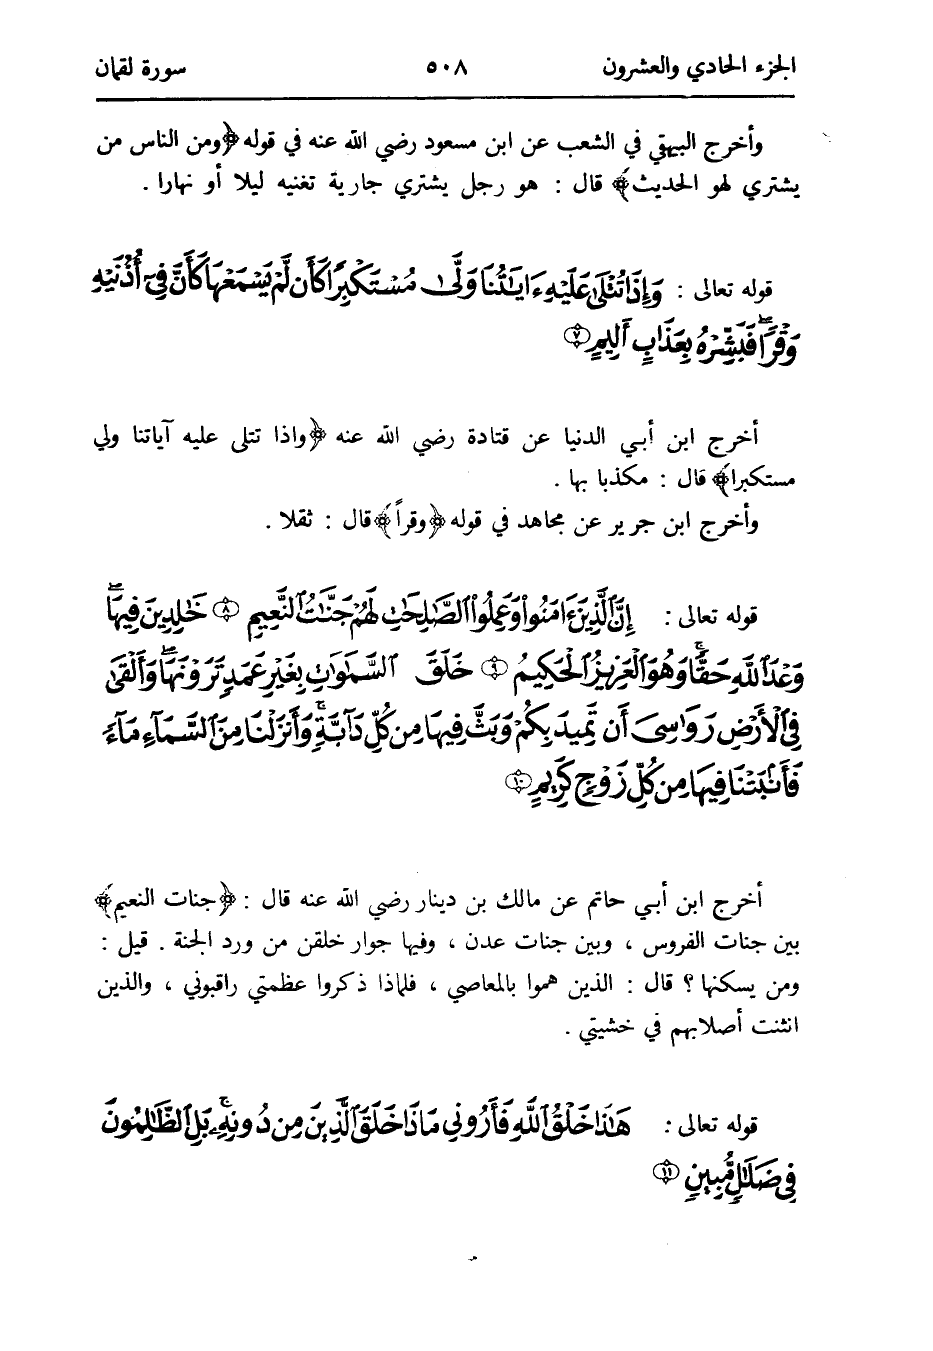 الجزء الحادي والعشرون ٥٠٨ سورة لقمان
وأخرج البيهقي في الشعب عن ابن مسعود رضي الله عنه في قوله ﴿ومن الناس من
يشتري لهو الحديث﴾ قال : هو رجل يشتري جارية تغنيه ليلا أو نهارا .
قوله تعالى : وَإِذَا تُتْلَىٰ عَلَيْهِ ءَايَٰتُنَا وَلَّىٰ مُسْتَكْبِرًا كَأَن لَّمْ يَسْمَعْهَا كَأَنَّ فِىٓ أُذُنَيْهِ
وَقْرًاۖ فَبَشِّرْهُ بِعَذَابٍ أَلِيمٍ ٧
أخرج ابن أبي الدنيا عن قتادة رضي الله عنه ﴿واذا تتلى عليه آياتنا ولي
مستكبرا﴾ قال : مكذبا بها .
وأخرج ابن جرير عن مجاهد في قوله ﴿وقراً﴾ قال : ثقلا .
قوله تعالى : إِنَّ ٱلَّذِينَ ءَامَنُوا۟ وَعَمِلُوا۟ ٱلصَّٰلِحَٰتِ لَهُمْ جَنَّٰتُ ٱلنَّعِيمِ ٨ خَٰلِدِينَ فِيهَاۖ
وَعْدَ ٱللَّهِ حَقًّاۚ وَهُوَ ٱلْعَزِيزُ ٱلْحَكِيمُ ٩ خَلَقَ ٱلسَّمَٰوَٰتِ بِغَيْرِ عَمَدٍ تَرَوْنَهَاۖ وَأَلْقَىٰ
فِى ٱلْأَرْضِ رَوَٰسِىَ أَن تَمِيدَ بِكُمْ وَبَثَّ فِيهَا مِن كُلِّ دَآبَّةٍۚ وَأَنزَلْنَا مِنَ ٱلسَّمَآءِ مَآءً
فَأَنۢبَتْنَا فِيهَا مِن كُلِّ زَوْجٍ كَرِيمٍ ١٠
أخرج ابن أبي حاتم عن مالك بن دينار رضي الله عنه قال : ﴿جنات النعيم﴾
بين جنات الفروس ، وبين جنات عدن ، وفيها جوار خلقن من ورد الجنة . قيل :
ومن يسكنها ؟ قال : الذين هموا بالمعاصي ، فلماذا ذكروا عظمتي راقبوني ، والذين
انثنت أصلابهم في خشيتي .
قوله تعالى : هَٰذَا خَلْقُ ٱللَّهِ فَأَرُونِى مَاذَا خَلَقَ ٱلَّذِينَ مِن دُونِهِۦۚ بَلِ ٱلظَّٰلِمُونَ
فِى ضَلَٰلٍ مُّبِينٍ ١١